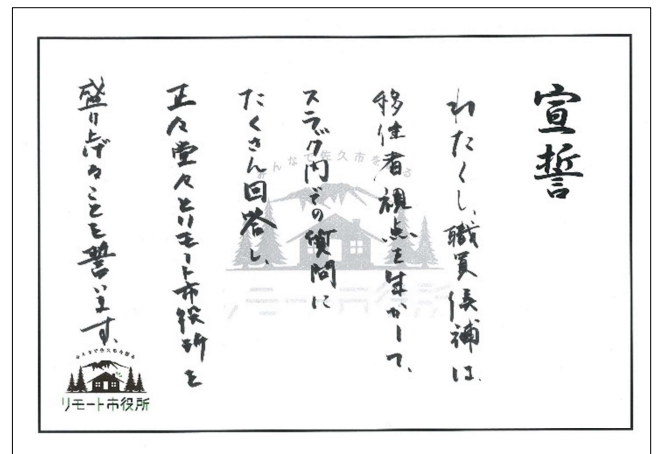 宣誓
わたくし、職員候補は、
移住者視点を生かして、
スラック内での質問に
たくさん回答し、
正々堂々とリモート市役所を
盛り上げることを誓います。
みんなで佐久市を作る
リモート市役所
リモート市役所